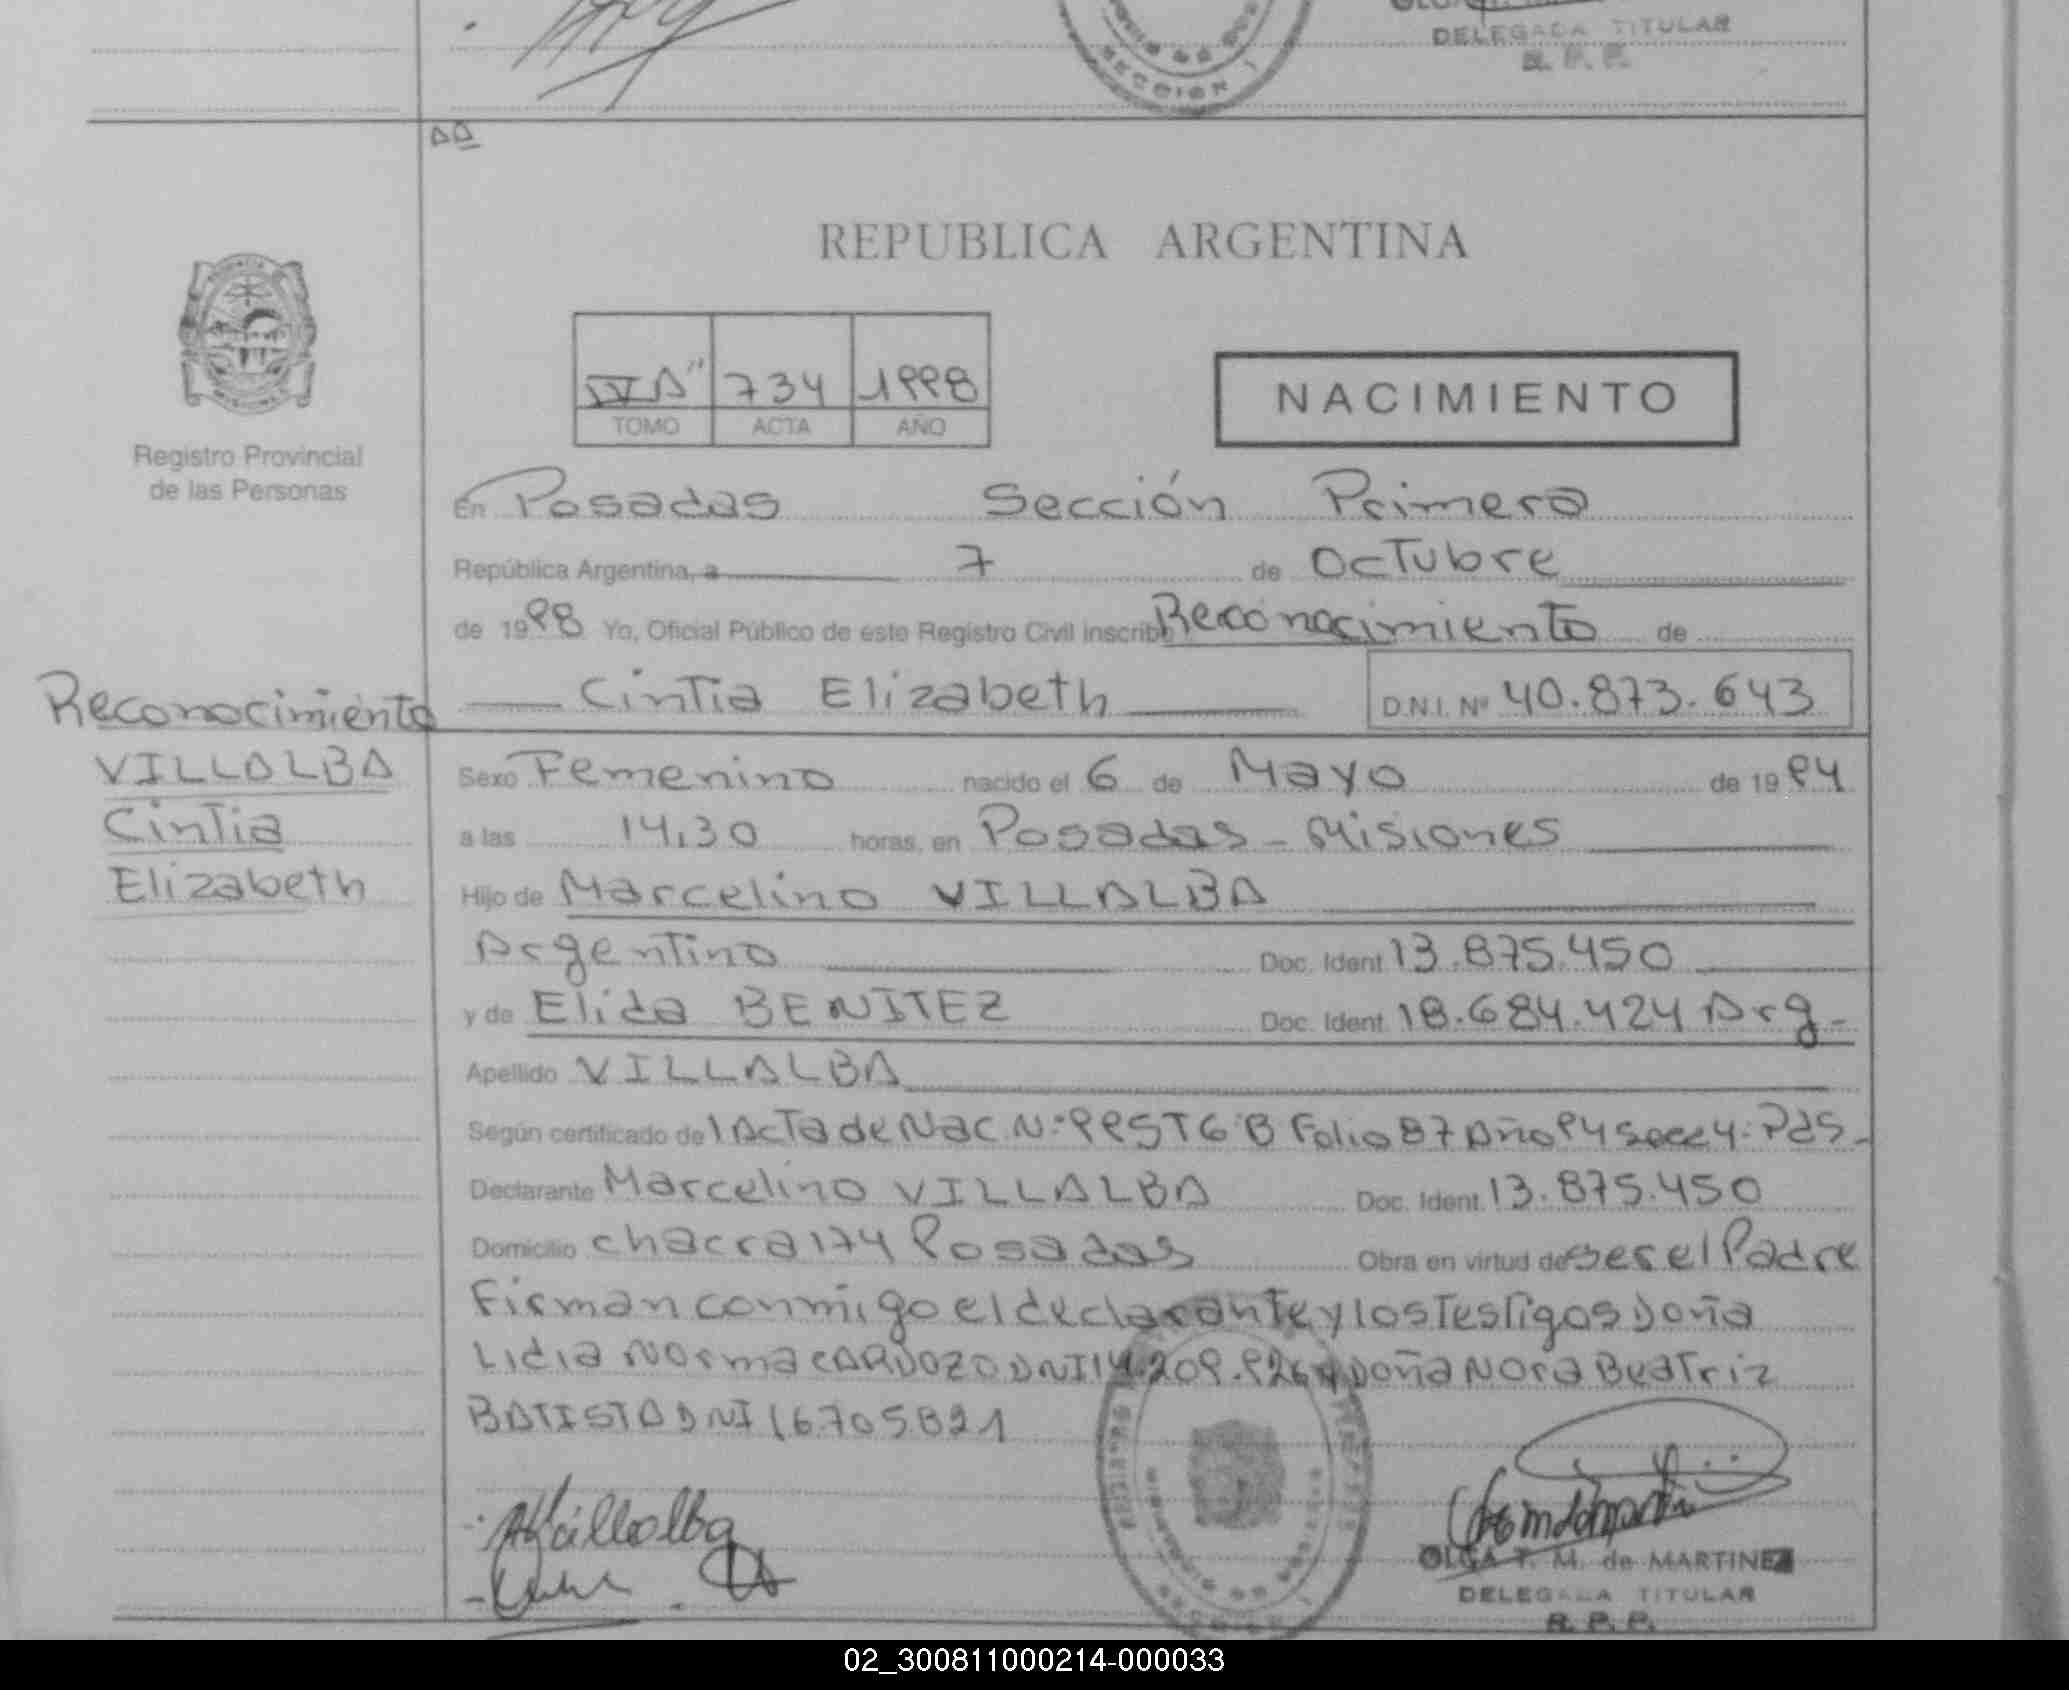 DELEGADA TITULAR
R. P. P.
SECCION 1
REPUBLICA ARGENTINA
IV "A" 734 1998
TOMO ACTA AÑO
NACIMIENTO
Registro Provincial
de las Personas
En Posadas Sección Primera
República Argentina, a 7 de Octubre
de 1998 Yo, Oficial Público de este Registro Civil inscribo Reconocimiento de
Cintia Elizabeth D.N.I. Nº 40.873.643
Reconocimiento
VILLALBA
Cintia
Elizabeth
Sexo Femenino nacido el 6 de Mayo de 1994
a las 14,30 horas, en Posadas - Misiones
Hijo de Marcelino VILLALBA
Argentino Doc. Ident 13.875.450
y de Elida BENITEZ Doc. Ident. 18.684.424 Arg-
Apellido VILLALBA
Según certificado de 1 Acta de Nac. Nº 995 T 6 B Folio 87 Año 94 Secc 4º Pds-
Declarante Marcelino VILLALBA Doc. Ident. 13.875.450
Domicilio chacra 174 Posadas Obra en virtud de ser el Padre
Firman conmigo el declarante y los Testigos Doña
Lidia Norma CARDOZO DNI 14.209.926 y Doña Nora Beatriz
BATISTA DNI 16.705.821
OLGA T. M. de MARTINEZ
DELEGADA TITULAR
R. P. P.
02_300811000214-000033